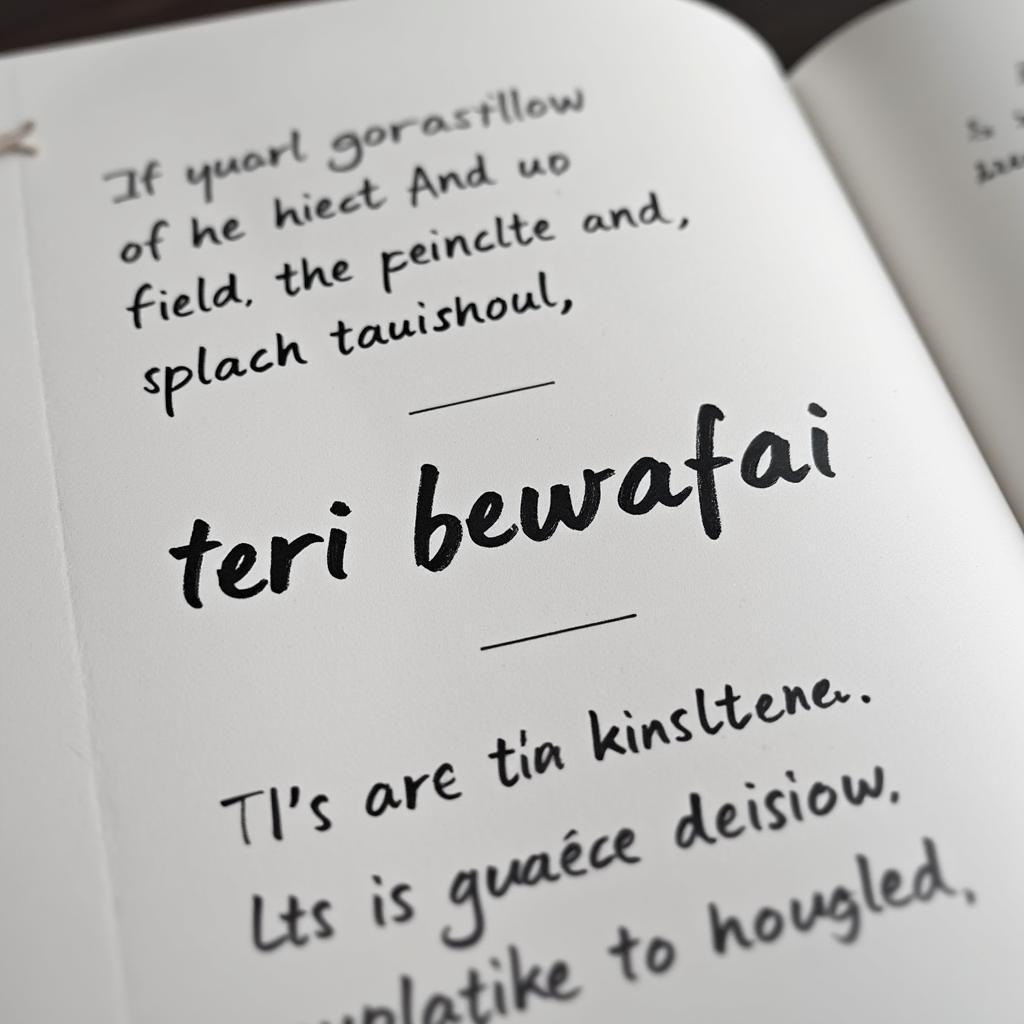 If yuarl gorastllow
of he hiect And uo
field, the peinclte and,
splach tauishoul,
teri bewafai
Tl's are tia kinsltene.
Lts is guaéce deisiow.
to hougled,